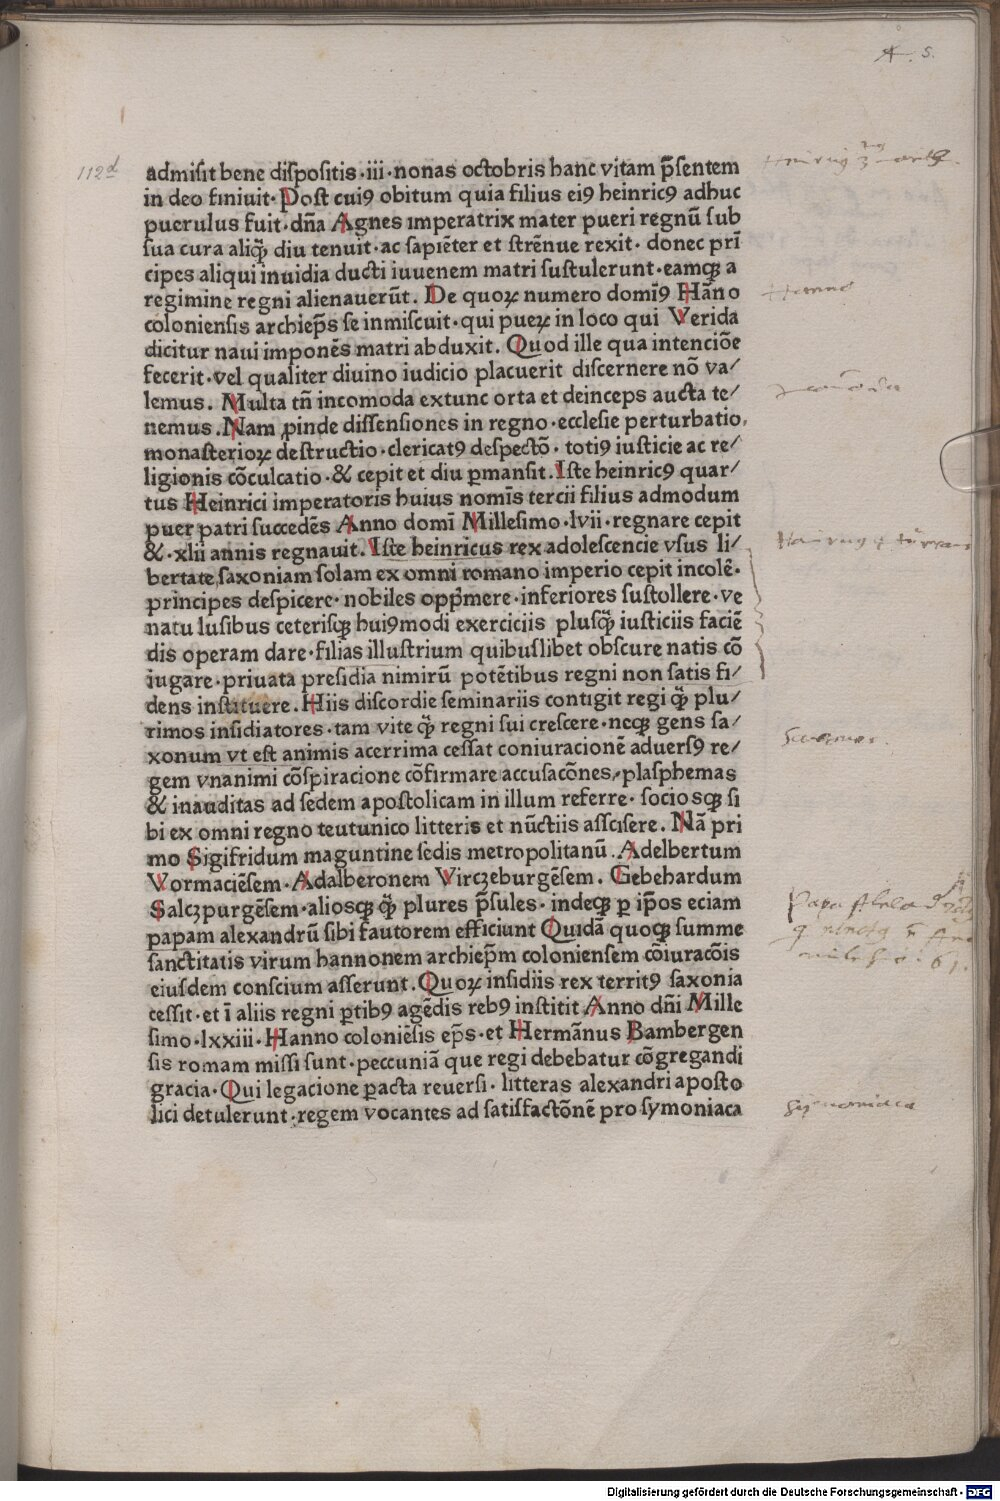 A. 5.
112d
admisit bene dispositis·iii·nonas octobris hanc vitam p̄sentem
in deo finiuit· Post cuiꝰ obitum quia filius eiꝰ heinricꝰ adhuc
puerulus fuit· dn̄a Agnes imperatrix mater pueri regnū sub
sua cura aliq̄ꝫ diu tenuit· ac sapiēter et strēnue rexit· donec prī
cipes aliqui inuidia ducti iuuenem matri sustulerunt·eamqꝫ a
regimine regni alienauerūt. De quoꝝ numero domīꝰ Hāno
coloniensis archiep̄s se inmiscuit·qui pueꝝ in loco qui Verida
dicitur naui imponēs matri abduxit. Quod ille qua intenciōe
fecerit·vel qualiter diuino iudicio placuerit discernere nō va/
lemus. Multa tn̄ incomoda extunc orta et deinceps aucta te/
nemus. Nam ꝓinde dissensiones in regno·ecclesie perturbatio,
monasterioꝝ destructio·clericatꝰ despectō· totiꝰ iusticie ac re/
ligionis cōculcatio·& cepit et diu ꝑmansit. Iste heinricꝰ quar/
tus Heinrici imperatoris huius nomīs tercii filius admodum
puer patri succedēs Anno domī Millesimo·lvii·regnare cepit
&·xlii annis regnauit. Iste heinricus rex adolescencie vsus li/
bertate saxoniam solam ex omni romano imperio cepit incolē·
principes despicere·nobiles opp̄mere·inferiores sustollere·ve
natu lusibus ceterisqꝫ huiꝰmodi exerciciis plusq̄ꝫ iusticiis faciē
dis operam dare·filias illustrium quibuslibet obscure natis cō
iugare·priuata presidia nimirū potētibus regni non satis fi/
dens instituere. Hiis discordie seminariis contigit regi q̄ꝫ plu/
rimos insidiatores·tam vite q̄ꝫ regni sui crescere·neqꝫ gens sa/
xonum vt est animis acerrima cessat coniuracionē aduersꝰ re/
gem vnanimi cōspiracione cōfirmare accusacōnes,plasphemas
& inauditas ad sedem apostolicam in illum referre· sociosqꝫ si
bi ex omni regno teutunico litteris et nūctiis asscisere. Nā pri
mo Sigifridum maguntine sedis metropolitanū. Adelbertum
Vormaciēsem·Adalberonem Virczeburgēsem. Gebehardum
Salczpurgēsem·aliosqꝫ q̄ꝫ plures p̄sules· indeqꝫ ꝑ ip̄os eciam
papam alexandrū sibi fautorem efficiunt Quidā quoqꝫ summe
sanctitatis virum hannonem archiep̄m coloniensem cōiuracōis
eiusdem conscium asserunt. Quoꝝ insidiis rex territꝰ saxonia
cessit·et ī aliis regni ꝑtibꝰ agēdis rebꝰ institit Anno dn̄i Mille
simo·lxxiii·Hanno coloniēsis ep̄s·et Hermānus Bambergen
sis romam missi sunt·peccuniā que regi debebatur cōgregandi
gracia·Qui legacione ꝑacta reuersi·litteras alexandri aposto
lici detulerunt·regem vocantes ad satisfactōnē pro symoniaca
Hanno
Symoniaca
Digitalisierung gefördert durch die Deutsche Forschungsgemeinschaft - DFG